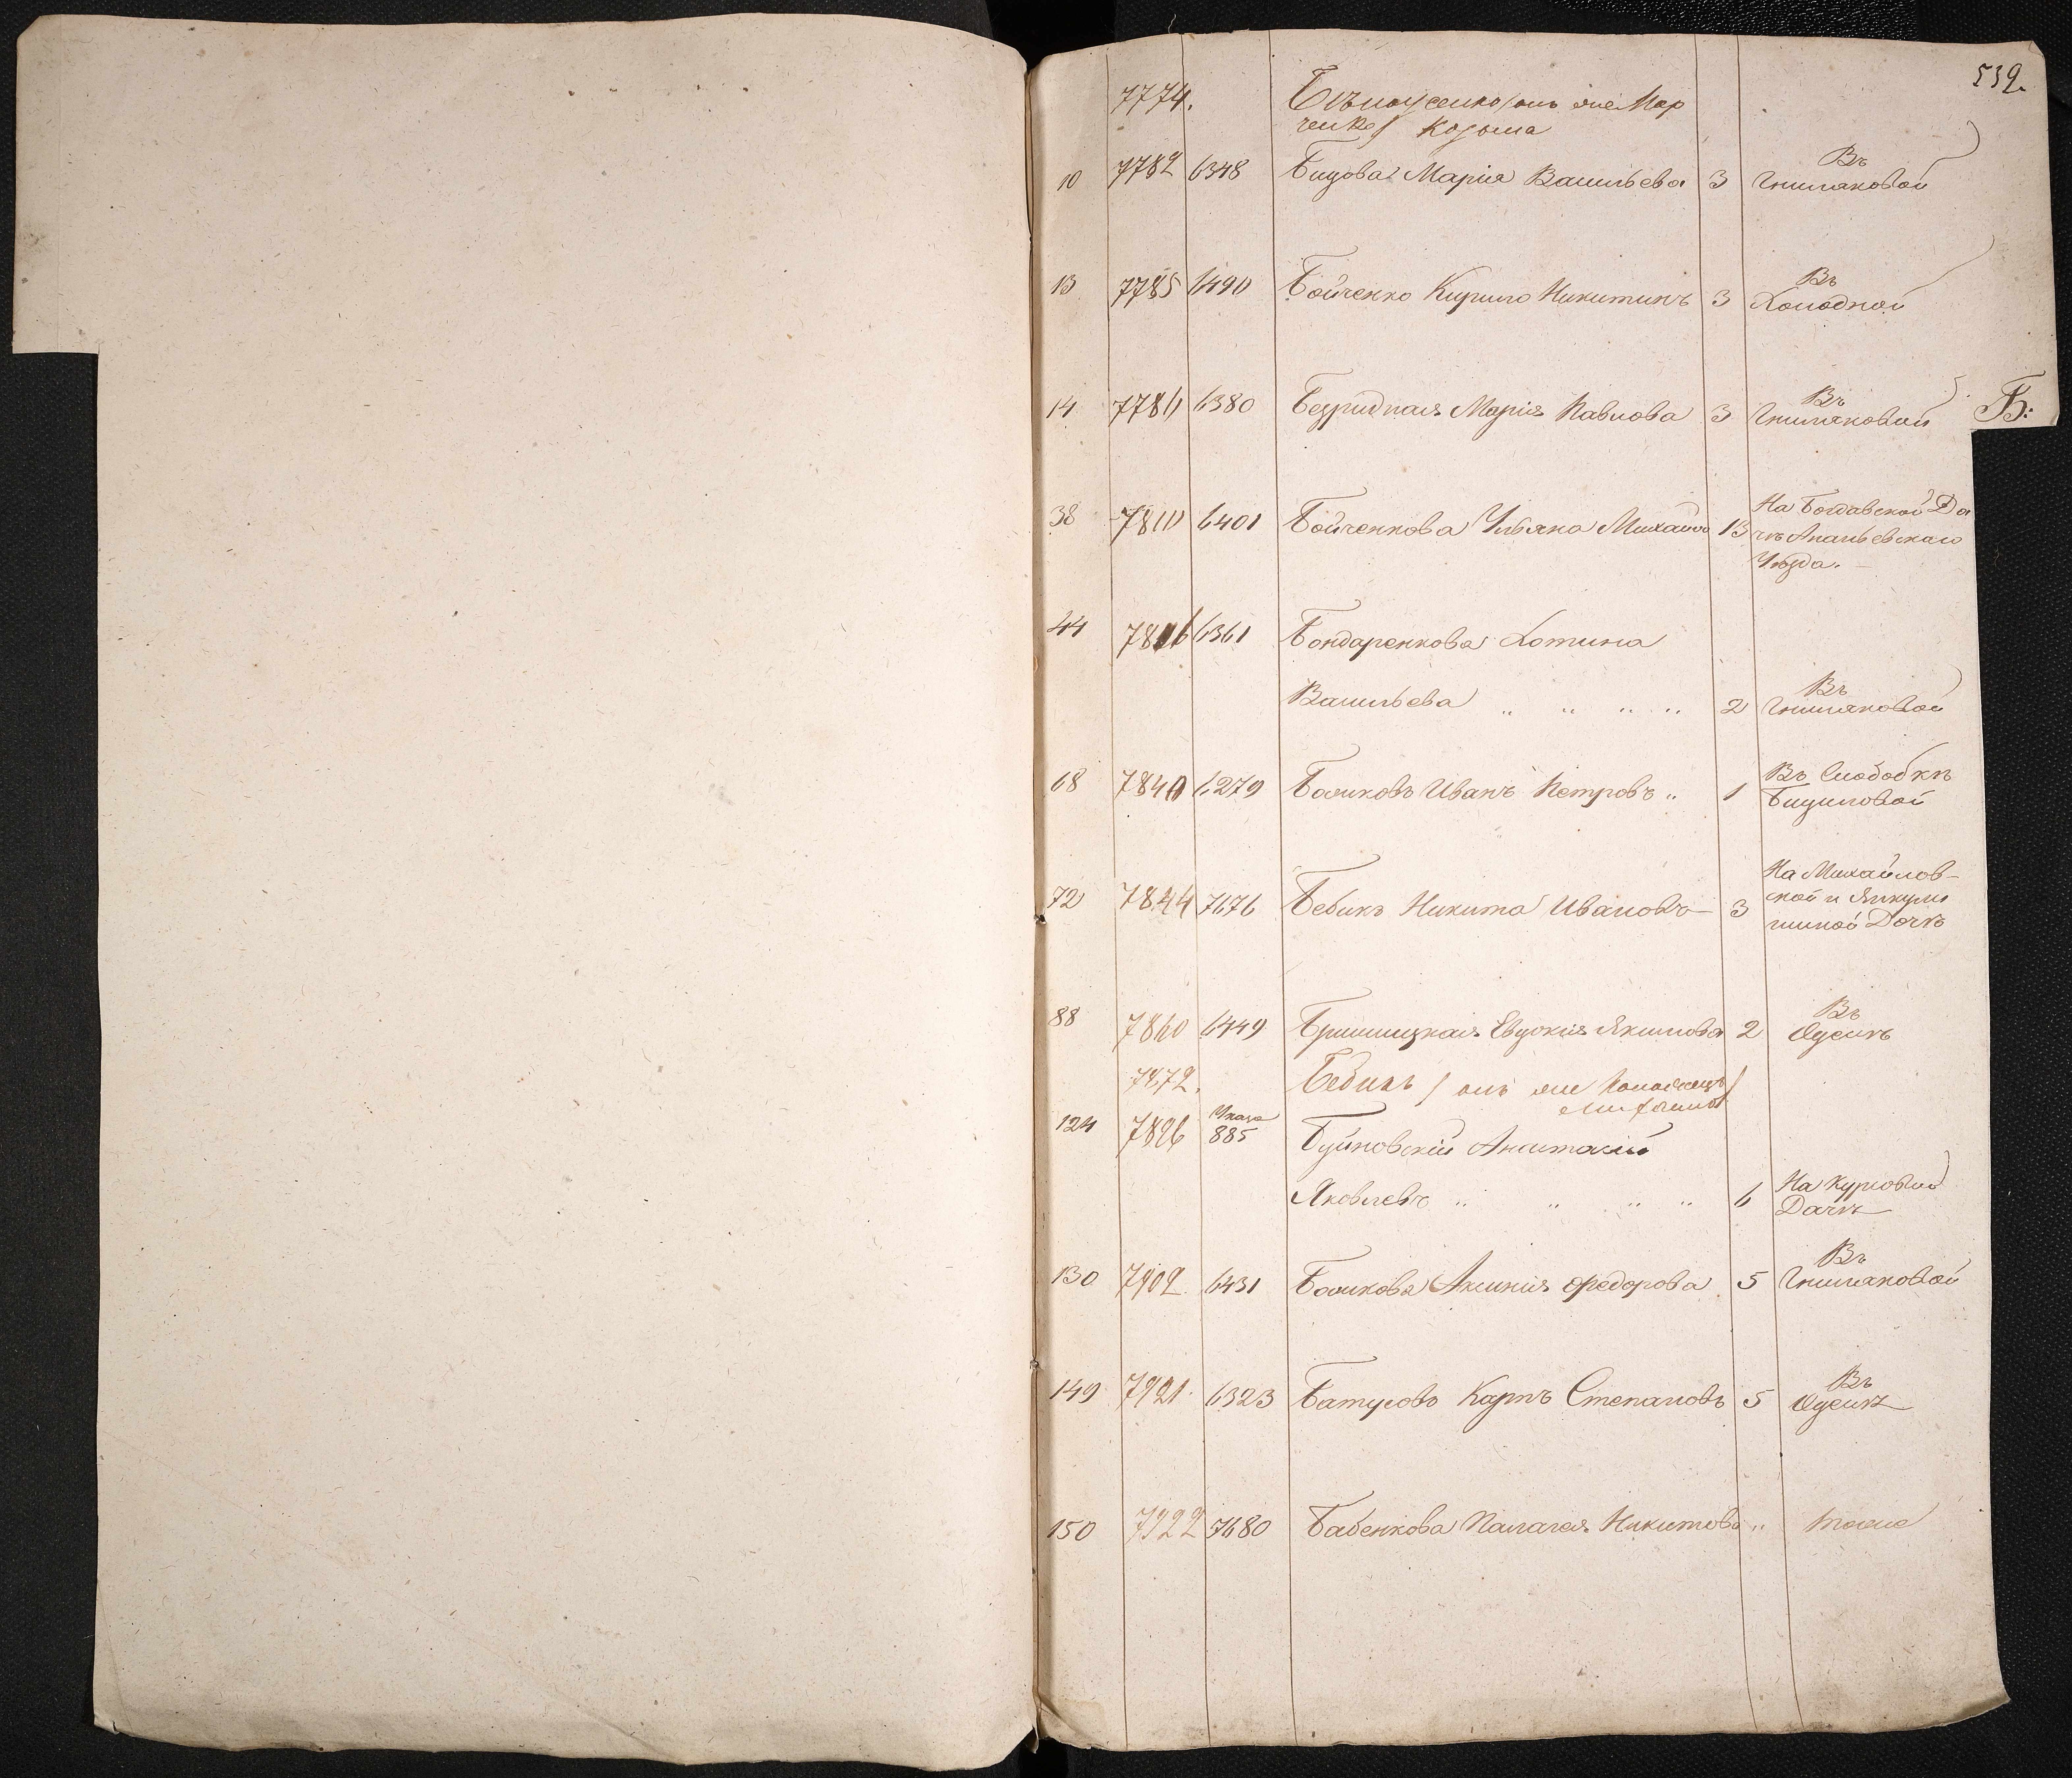 539.
7774. Бѣлоусенко /онъ же Мар
ченко/ Козьма
10 7782 6348 Бицова Марія Васильева 3 Въ
Гниляковой
13 7785 6490 Бойченко Кирило Никитинъ 3 Въ
Холодной
14 7786 6380 Безридная Марія Павлова 3 Въ
Гниляковой
Б:
38 7810 6401 Бойченкова Ульяна Михайло 13 На Богдавской Да
чѣ Ананьевскаго
Уѣзда.
44 7816 6361 Бондаренкова Хотина
Васильева „ „ „ „ 2 Въ
Гниляковой
68 7840 6279 Боликовъ Иванъ Петровъ „ 1 Въ Слободкѣ
Бициловой
72 7844 7676 Бебикъ Никита Ивановъ 3 На Михайлов-
ской и
Дачѣ
88 7860 6449 Евдокія Якимова 2 Въ
Одессѣ
7872. Бебикъ / онъ же
124 7896 Указа
885 Буйновскій Анастасій
Яковлевъ „ „ „ „ 6 На Курсовой
Дачѣ
130 7902. 6431 Боликова Аксинія Федорова 5 Въ
Гниляковой
149 7921. 6323 Батусовъ Карпъ Степановъ 5 Въ
Одессѣ
150 7922 7680 Бабенкова Палагея Никитова „ тоже